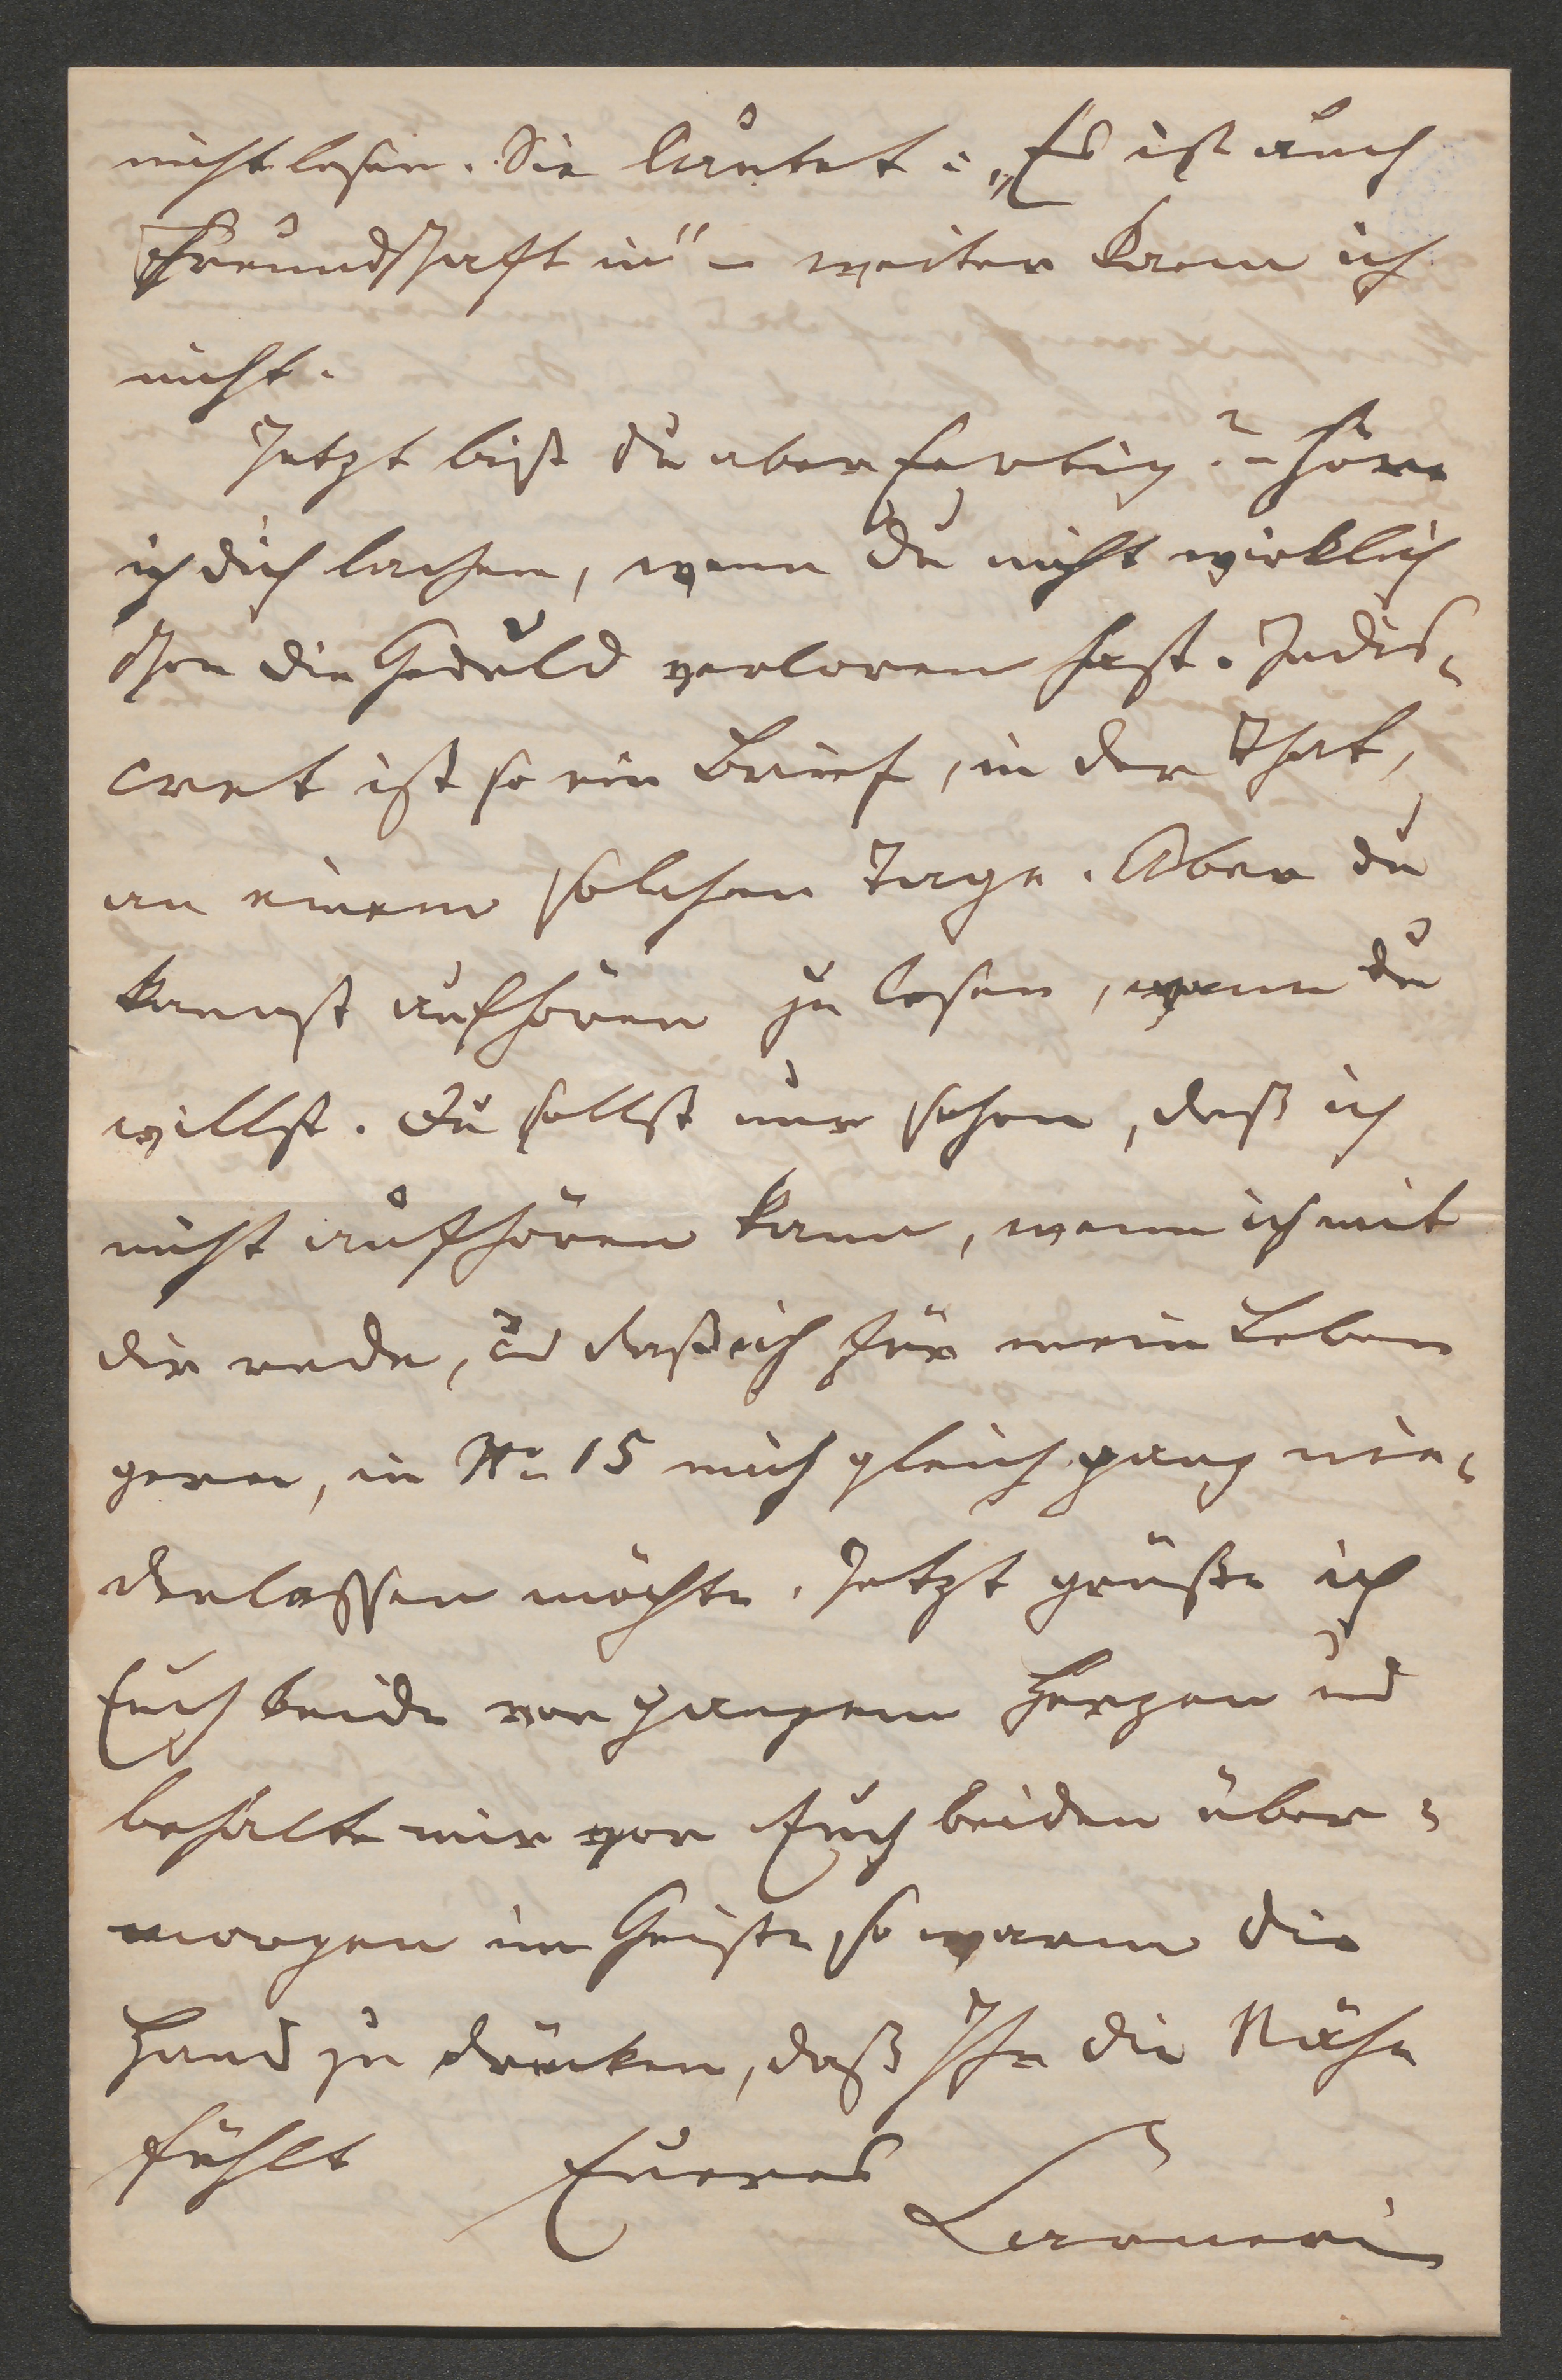 nicht lesen. Sie lautet: „Es ist auch
Freundschaft in“ – weiter kam ich
nicht.
Jetzt bist du aber fertig? – höre
ich dich lachen, wenn du nicht wirklich
schon die Geduld verloren hast. Indis-
cret ist so ein Brief, in der That,
an einem solchen Tage. Aber du
kannst aufhören zu lesen, wann du
willst. Du sollst nur sehen, daß ich
nicht aufhören kann, wenn ich mit
dir rede, und daß ich für mein Leben
gern, in No 15 mich gleich ganz nie-
derlassen möchte. Jetzt grüße ich
Euch beide von ganzem Herzen und
behalte mir vor Euch beiden über-
morgen im Geiste so warm die
Hand zu drücken, daß Ihr die Nähe
fühlt Eueres
Carneri